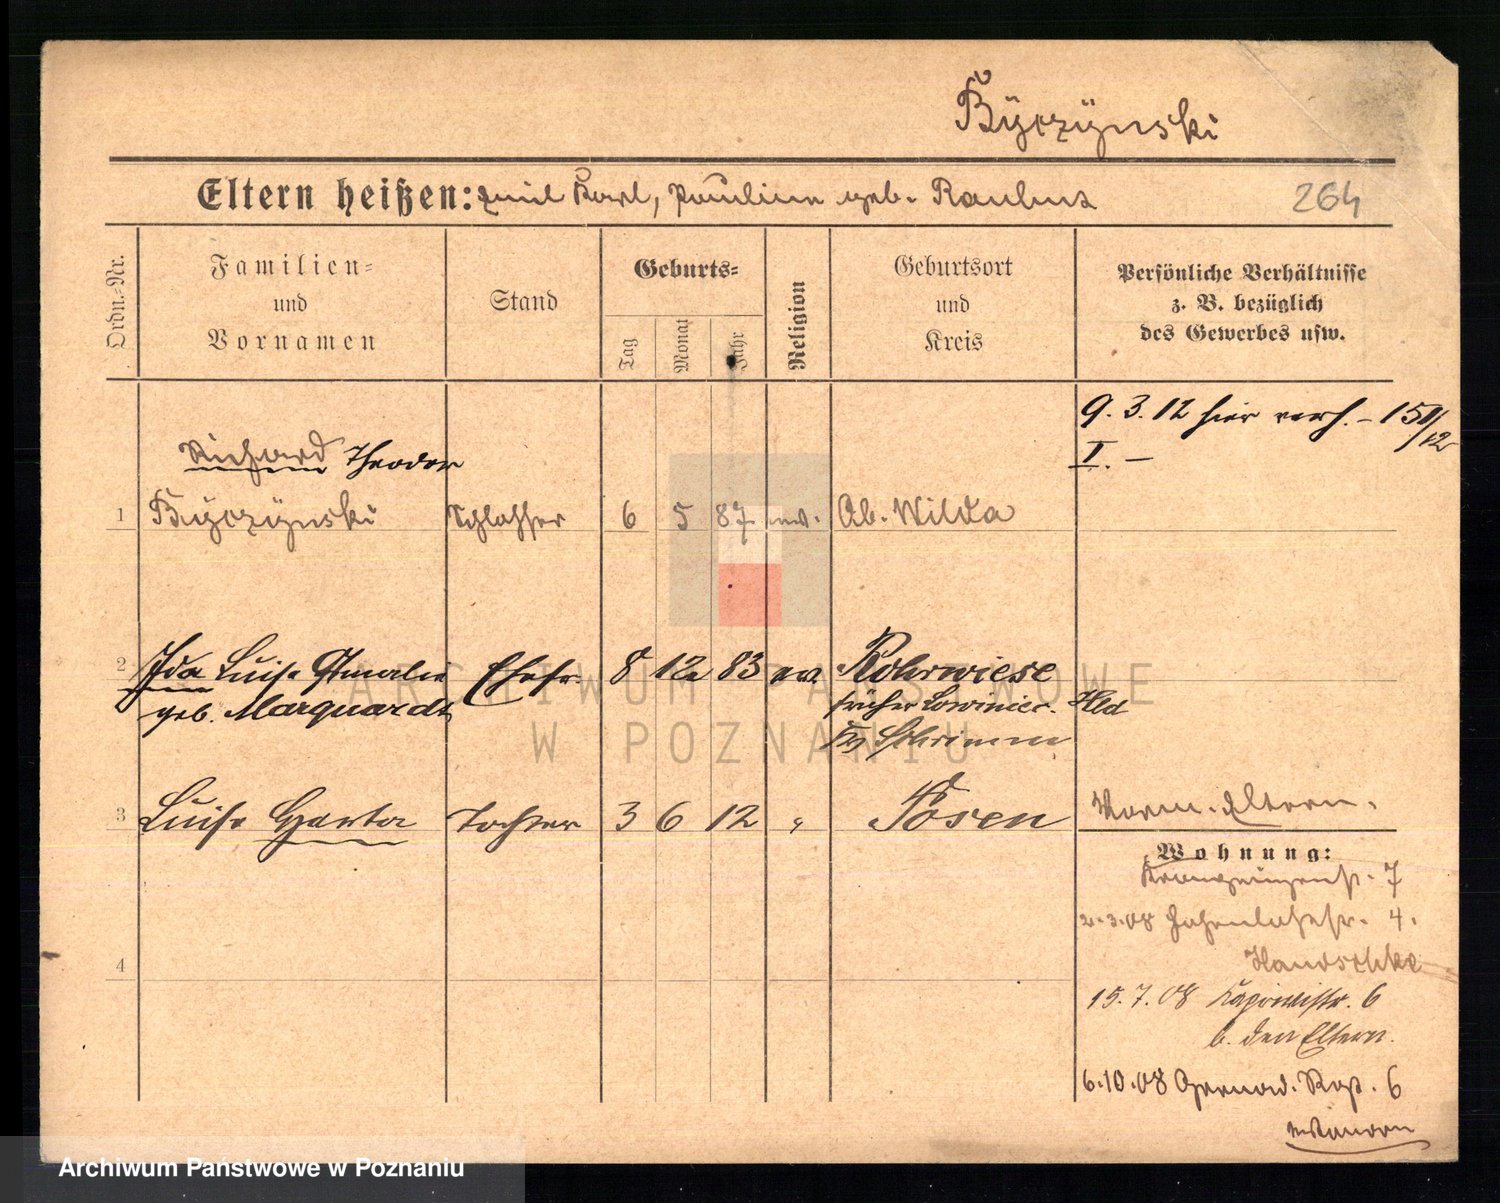 Byczynski
Eltern heißen: Emil Karl, Pauline geb. Rauhut
264
Ordn.-Nr.
Familien-
und
Vornamen
Stand
Geburts-
Tag
Monat
Jahr
Religion
Geburtsort
und
Kreis
Persönliche Verhältnisse
z. B. bezüglich
des Gewerbes usw.
9. 3. 12 hier verh. - 151/12
I. -
Richard Theodor
1 Byczynski Schlosser 6 5 87 ev. Ob. Wilda
2 Ida Luise Amalie Ehefr. 8 12 83 ev. Rohrwiese
geb. Marquardt früher Lowiniec. Hld
Kr Schrimm
3 Luise Herta Tochter 3 6 12 " Posen
Vorm. Eltern.
Wohnung:
Kronprinzenstr. 7
2.3.08 4.
Handschke
4
15. 7. 08 6
b. den Eltern.
6.10.08 6
ARCHIWUM PAŃSTWOWE
W POZNANIU
Archiwum Państwowe w Poznaniu